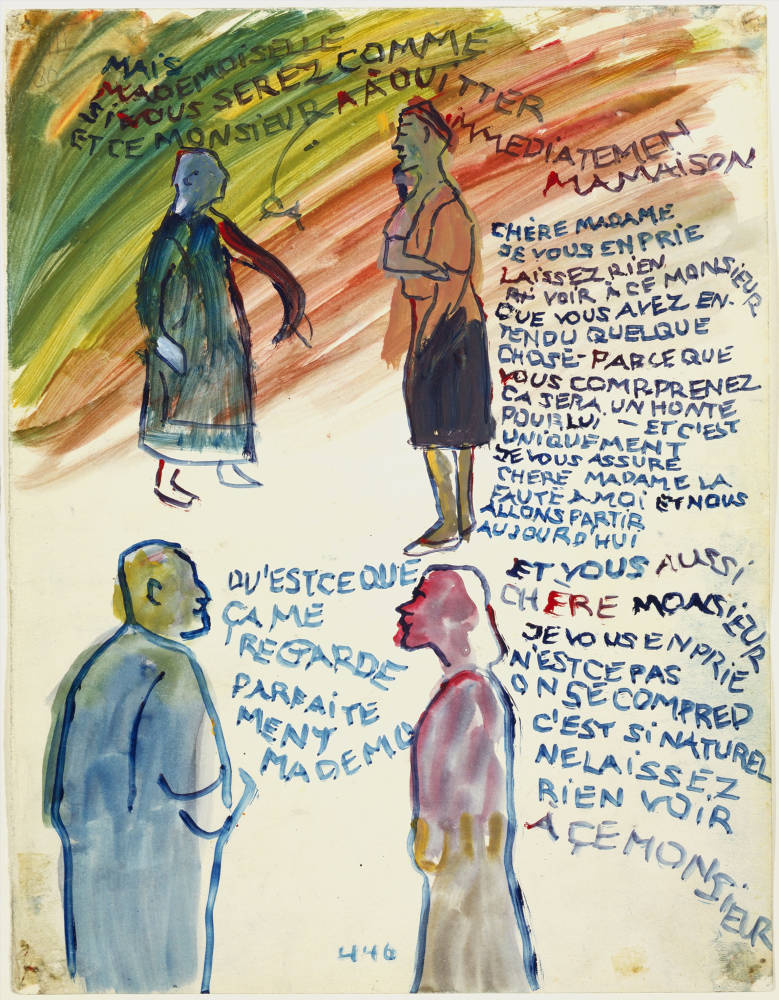 MAIS
MADEMOISELLE
SI VOUS SEREZ COMME
ET CE MONSIEUR A À QUITTER
IMMEDIATEMEN
MA MAISON
CHÈRE MADAME
JE VOUS EN PRIE
LAISSEZ RIEN
VOIR À CE MONSIEUR
QUE VOUS AVEZ EN-
TENDU QUELQUE
CHOSE - PARCE QUE
VOUS COMRPRENEZ
ÇA SERA UN HONTE
POUR LUI - ET C'EST
UNIQUEMENT
JE VOUS ASSURE
CHÈRE MADAME LA
FAUTE A MOI ET NOUS
ALLONS PARTIR
AUJOURD'HUI
QU'EST CE QUE
ÇA ME
REGARDE
PARFAITE
MENT
MADEMO
ET VOUS AUSSI
CHERE MONSIEUR
JE VOUS EN PRIE
N'EST CE PAS
ON SE COMPRED
C'EST SI NATUREL
NE LAISSEZ
RIEN VOIR
À ÇE MONSIEUR
446